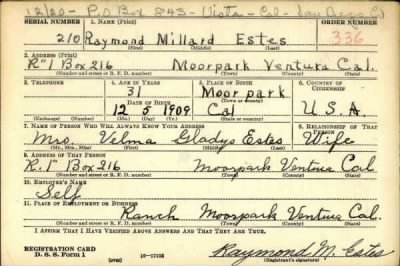 12/20 - P.O. Box 843 - Vista - Cal - San Diego Co
SERIAL NUMBER 1. NAME (Print) ORDER NUMBER
210 Raymond Millard Estes 336
(First) (Middle) (Last)
2. ADDRESS (Print)
R"1 Box 216 Moorpark Ventura Cal.
(Number and street or R. F. D. number) (Town) (County) (State)
3. TELEPHONE 4. AGE IN YEARS 5. PLACE OF BIRTH 6. COUNTRY OF CITIZENSHIP
31 Moorpark
DATE OF BIRTH (Town or county)
12 5 1909 Cal U.S.A.
(Exchange) (Number) (Mo.) (Day) (Yr.) (State or country)
7. NAME OF PERSON WHO WILL ALWAYS KNOW YOUR ADDRESS 8. RELATIONSHIP OF THAT PERSON
Mrs. Velma Gladys Estes Wife
(Mr., Mrs., Miss) (First) (Middle) (Last)
9. ADDRESS OF THAT PERSON
R.1" Box 216 Moorpark Ventura Cal
(Number and street or R. F. D. number) (Town) (County) (State)
10. EMPLOYER'S NAME
Self
11. PLACE OF EMPLOYMENT OR BUSINESS
Ranch Moorpark Ventura Cal.
(Number and street or R. F. D. number) (Town) (County) (State)
I AFFIRM THAT I HAVE VERIFIED ABOVE ANSWERS AND THAT THEY ARE TRUE.
REGISTRATION CARD
D. S. S. Form 1 (over) 16-17105 Raymond M. Estes
(Registrant's signature)